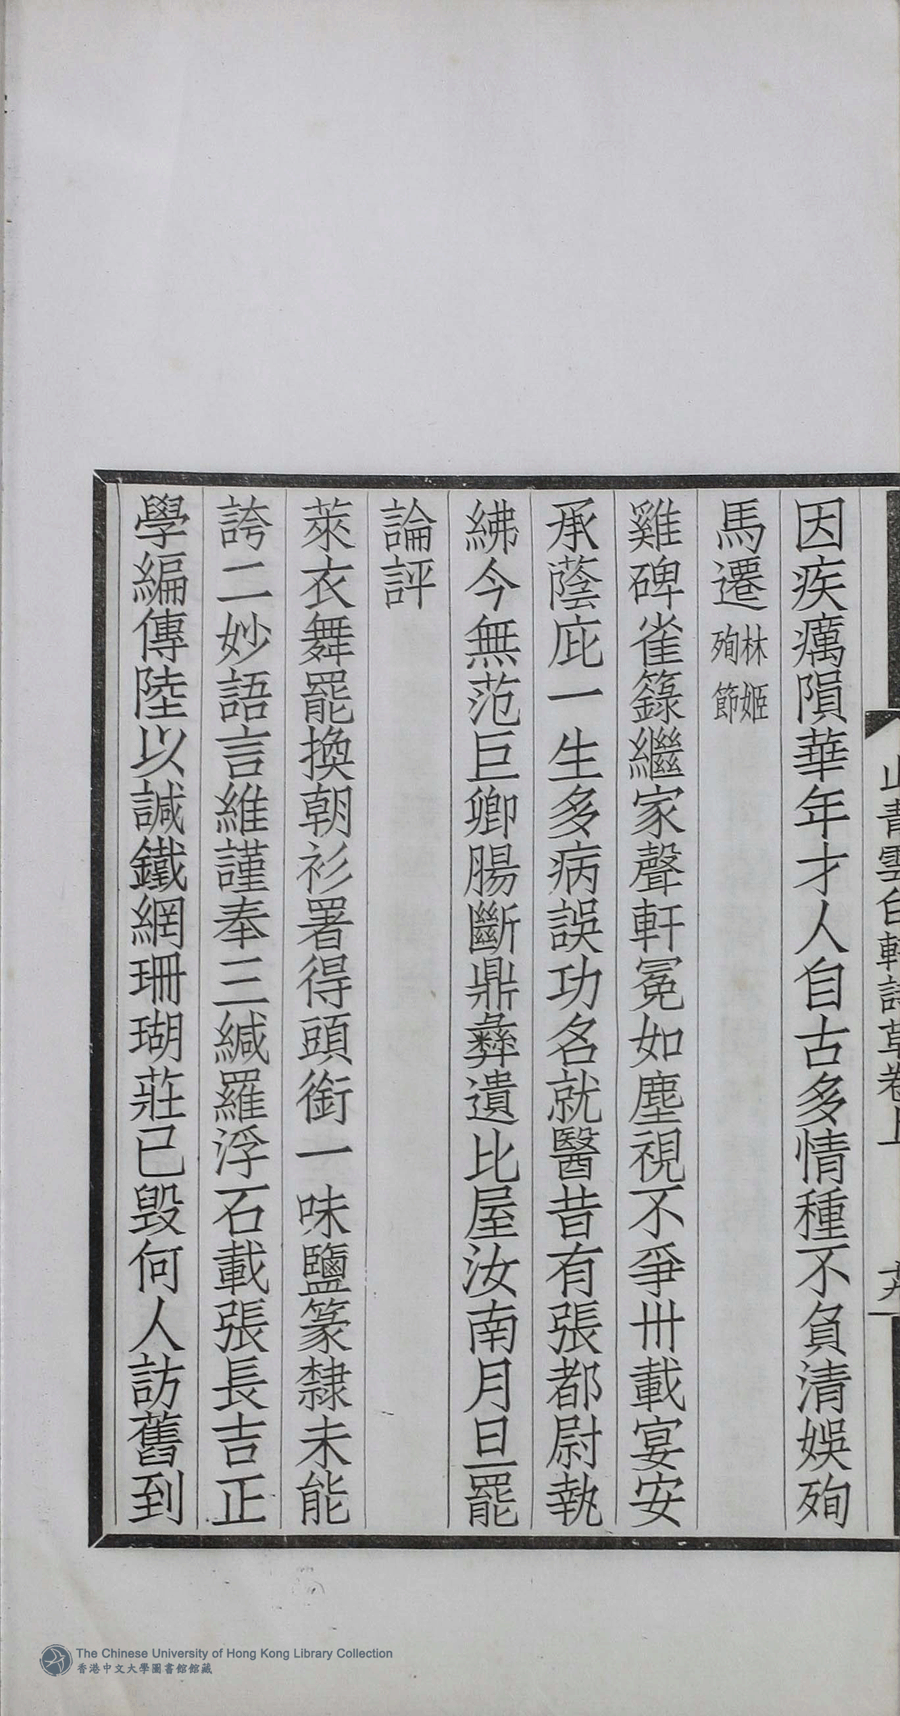 山青雲白軒詩草卷上
因疾癘隕華年才人自古多情種不負清娛殉
馬遷林姬殉節
雞碑雀籙繼家聲軒冕如塵視不爭卅載宴安
承蔭庇一生多病誤功名就醫昔有張都尉執
紼今無范巨卿腸斷鼎彝遺比屋汝南月旦罷
論評
萊衣舞罷換朝衫署得頭銜一味鹽篆隸未能
誇二妙語言維謹奉三緘羅浮石載張長吉正
學編傳陸以諴鐵網珊瑚莊已毀何人訪舊到
The Chinese University of Hong Kong Library Collection
香港中文大學圖書館館藏